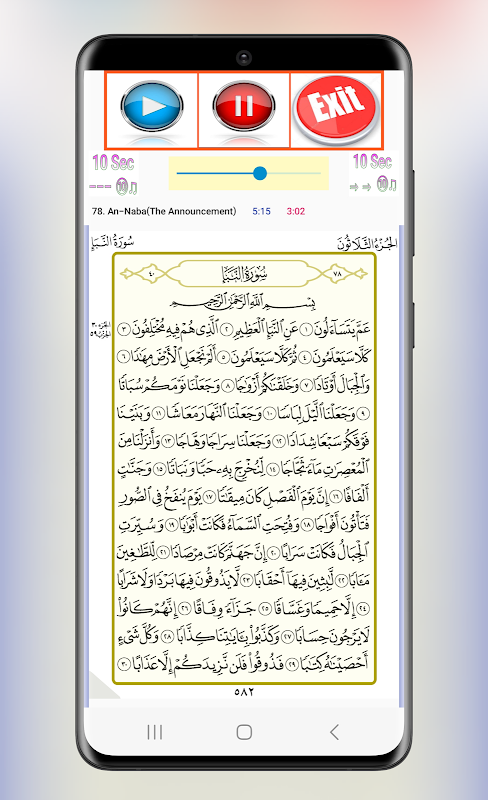 Exit
10 Sec
10 Sec
10
10
78. An-Naba(The Announcement) 5:15 3:02
سُورَةُ النَّبَإِ الجُزْءُ الثَّلَاثُونَ
٧٨ سُورَةُ النَّبَإِ ٤٠
بِسْمِ اللَّهِ الرَّحْمَٰنِ الرَّحِيمِ
عَمَّ يَتَسَآءَلُونَ ١ عَنِ ٱلنَّبَإِ ٱلْعَظِيمِ ٢ ٱلَّذِى هُمْ فِيهِ مُخْتَلِفُونَ ٣
كَلَّا سَيَعْلَمُونَ ٤ ثُمَّ كَلَّا سَيَعْلَمُونَ ٥ أَلَمْ نَجْعَلِ ٱلْأَرْضَ مِهَٰدًا ٦
وَٱلْجِبَالَ أَوْتَادًا ٧ وَخَلَقْنَٰكُمْ أَزْوَٰجًا ٨ وَجَعَلْنَا نَوْمَكُمْ سُبَاتًا
٩ وَجَعَلْنَا ٱلَّيْلَ لِبَاسًا ١٠ وَجَعَلْنَا ٱلنَّهَارَ مَعَاشًا ١١ وَبَنَيْنَا
فَوْقَكُمْ سَبْعًا شِدَادًا ١٢ وَجَعَلْنَا سِرَاجًا وَهَّاجًا ١٣ وَأَنزَلْنَا مِنَ
ٱلْمُعْصِرَٰتِ مَآءً ثَجَّاجًا ١٤ لِّنُخْرِجَ بِهِۦ حَبًّا وَنَبَاتًا ١٥ وَجَنَّٰتٍ
أَلْفَافًا ١٦ إِنَّ يَوْمَ ٱلْفَصْلِ كَانَ مِيقَٰتًا ١٧ يَوْمَ يُنفَخُ فِى ٱلصُّورِ
فَتَأْتُونَ أَفْوَاجًا ١٨ وَفُتِحَتِ ٱلسَّمَآءُ فَكَانَتْ أَبْوَٰبًا ١٩ وَسُيِّرَتِ
ٱلْجِبَالُ فَكَانَتْ سَرَابًا ٢٠ إِنَّ جَهَنَّمَ كَانَتْ مِرْصَادًا ٢١ لِّلطَّٰغِينَ
مَـَٔابًا ٢٢ لَّٰبِثِينَ فِيهَآ أَحْقَابًا ٢٣ لَّا يَذُوقُونَ فِيهَا بَرْدًا وَلَا شَرَابًا
٢٤ إِلَّا حَمِيمًا وَغَسَّاقًا ٢٥ جَزَآءً وِفَاقًا ٢٦ إِنَّهُمْ كَانُوا۟
لَا يَرْجُونَ حِسَابًا ٢٧ وَكَذَّبُوا۟ بِـَٔايَٰتِنَا كِذَّابًا ٢٨ وَكُلَّ شَىْءٍ
أَحْصَيْنَٰهُ كِتَٰبًا ٢٩ فَذُوقُوا۟ فَلَن نَّزِيدَكُمْ إِلَّا عَذَابًا ٣٠
٥٨٢